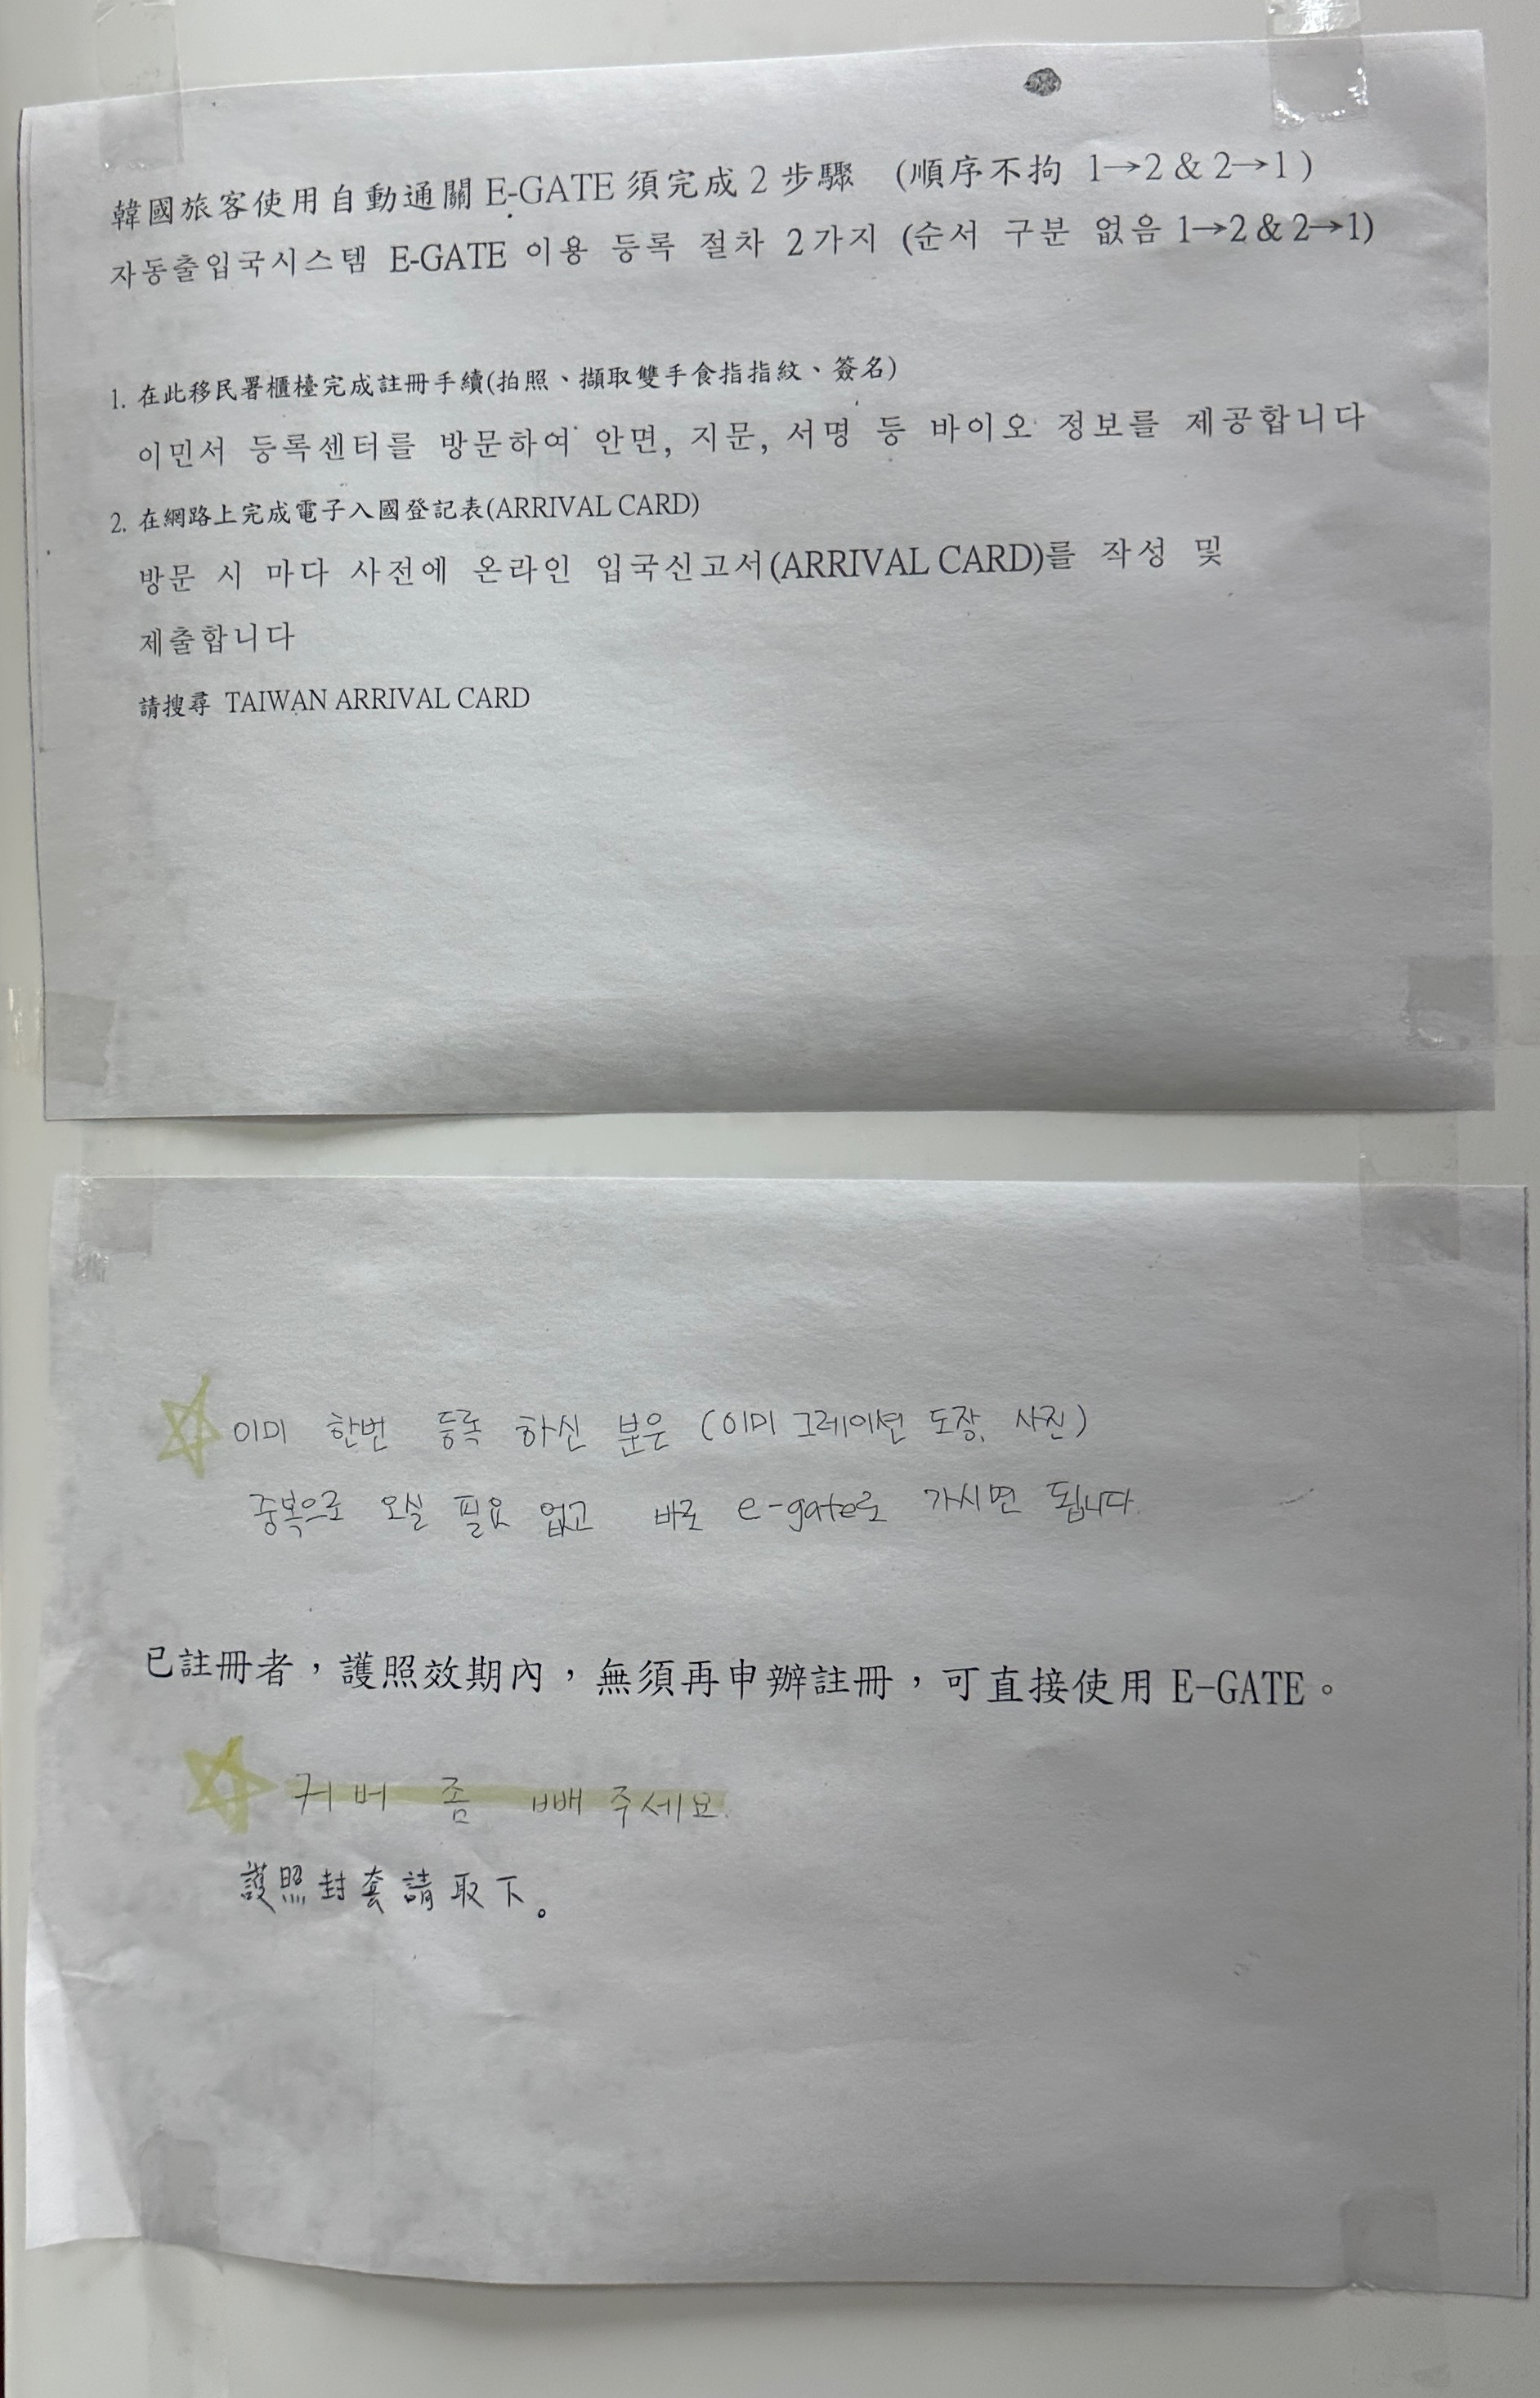 韓國旅客使用自動通關 E-GATE 須完成 2 步驟 (順序不拘 1→2 & 2→1 )
자동출입국시스템 E-GATE 이용 등록 절차 2가지 (순서 구분 없음 1→2 & 2→1)
1. 在此移民署櫃檯完成註冊手續(拍照、擷取雙手食指指紋、簽名)
이민서 등록센터를 방문하여 안면, 지문, 서명 등 바이오 정보를 제공합니다
2. 在網路上完成電子入國登記表(ARRIVAL CARD)
방문 시 마다 사전에 온라인 입국신고서(ARRIVAL CARD)를 작성 및
제출합니다
請搜尋 TAIWAN ARRIVAL CARD
이미 한번 등록 하신 분은 (이미그레이션 도장, 사진)
중복으로 오실 필요 없고 바로 e-gate로 가시면 됩니다.
已註冊者，護照效期內，無須再申辦註冊，可直接使用 E-GATE。
커버 좀 빼 주세요.
護照封套請取下。